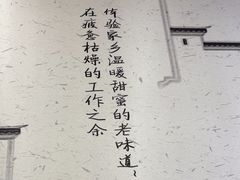 体验家乡温暖甜蜜的老味道，
在疲惫枯燥的工作之余